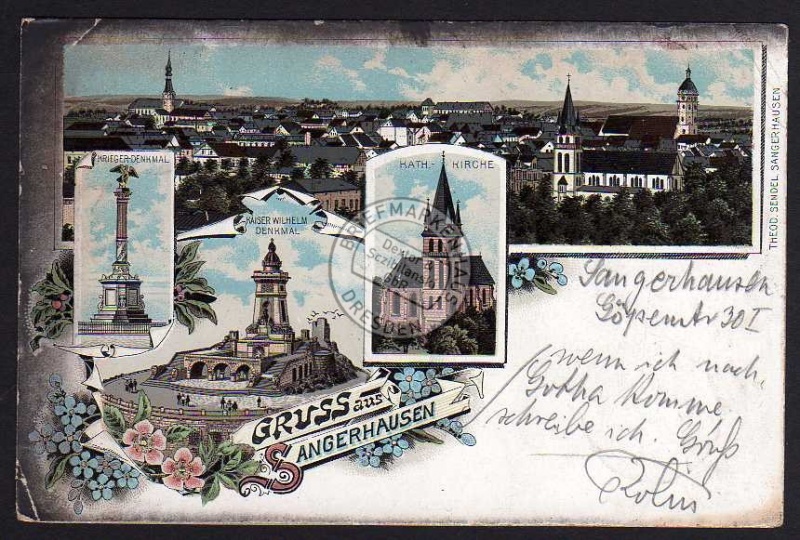 KRIEGER-DENKMAL
KAISER WILHELM
DENKMAL
KATH. KIRCHE
THEOD. SENDEL SANGERHAUSEN
BRIEFMARKENHAUS
Dexter
GbR
DRESDEN
GRUSS aus
SANGERHAUSEN
Sangerhausen
30 I
wenn ich nach
Gotha komme,
schreibe ich. Gruß